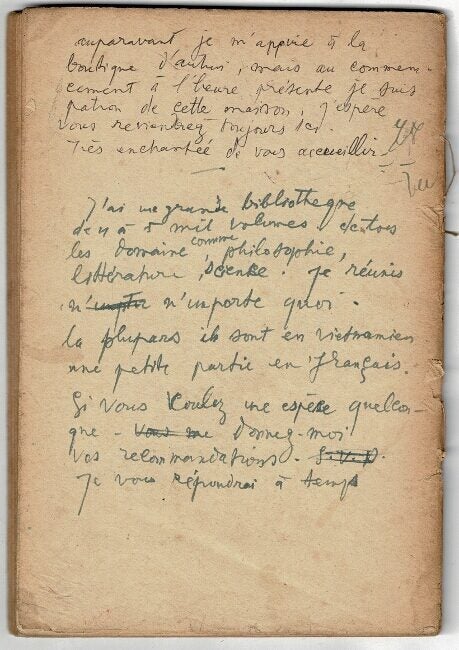 auparavant je m'appuie à la
boutique d'autrui, mais au commen-
cement à l'heure présente je suis
patron de cette maison, j'espère
vous reviendrez toujours ici.
Très enchantée de vous accueillir
J'ai une grande bibliothèque
de 4 à 5 mil volumes de tous
les domaine comme philosophie,
littérature, science. Je réunis
n' n'importe quoi.
la plupars ils sont en vietnamien
une petite partie en français.
Si vous voulez une espèce quelcon-
que - vous me donnez-moi
vos recommandations. S.V.P.
Je vous répondrai à temps